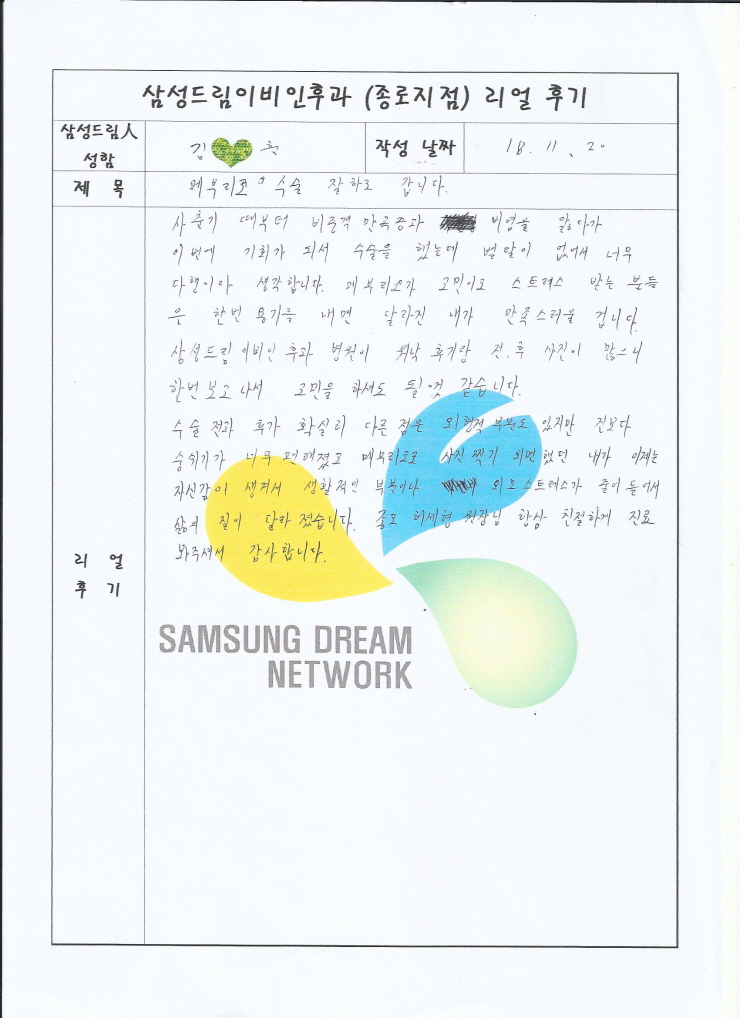 삼성드림이비인후과 (종로지점) 리얼 후기
삼성드림人
성함
김
작성 날짜
18. 11. 20
제 목
메부리코 + 수술 잘 하고 갑니다.
사춘기 때부터 비중격 만곡증과 비염을 앓다가
이번에 기회가 되서 수술을 했는데 별 탈이 없어서 너무
다행이라 생각합니다. 메부리코가 고민이고 스트레스 받는 분들
은 한번 용기를 내면 달라진 내가 만족스러울 겁니다.
삼성드림 이비인후과 병원이 워낙 후기랑 전.후 사진이 많으니
한번 보고 나서 고민을 하셔도 될 것 같습니다.
수술 전과 후가 확실히 다른 점은 외형적 부분도 있지만 전보다
숨쉬기가 너무 편해졌고 메부리코로 사진 찍기 외면했던 내가 이제는
자신감이 생겨서 생활적인 부분이나 외모 스트레스가 줄어들어서
삶의 질이 달라졌습니다. 종로 허세형 원장님 항상 친절하게 진료
봐주셔서 감사합니다.
리 얼
후 기
SAMSUNG DREAM
NETWORK